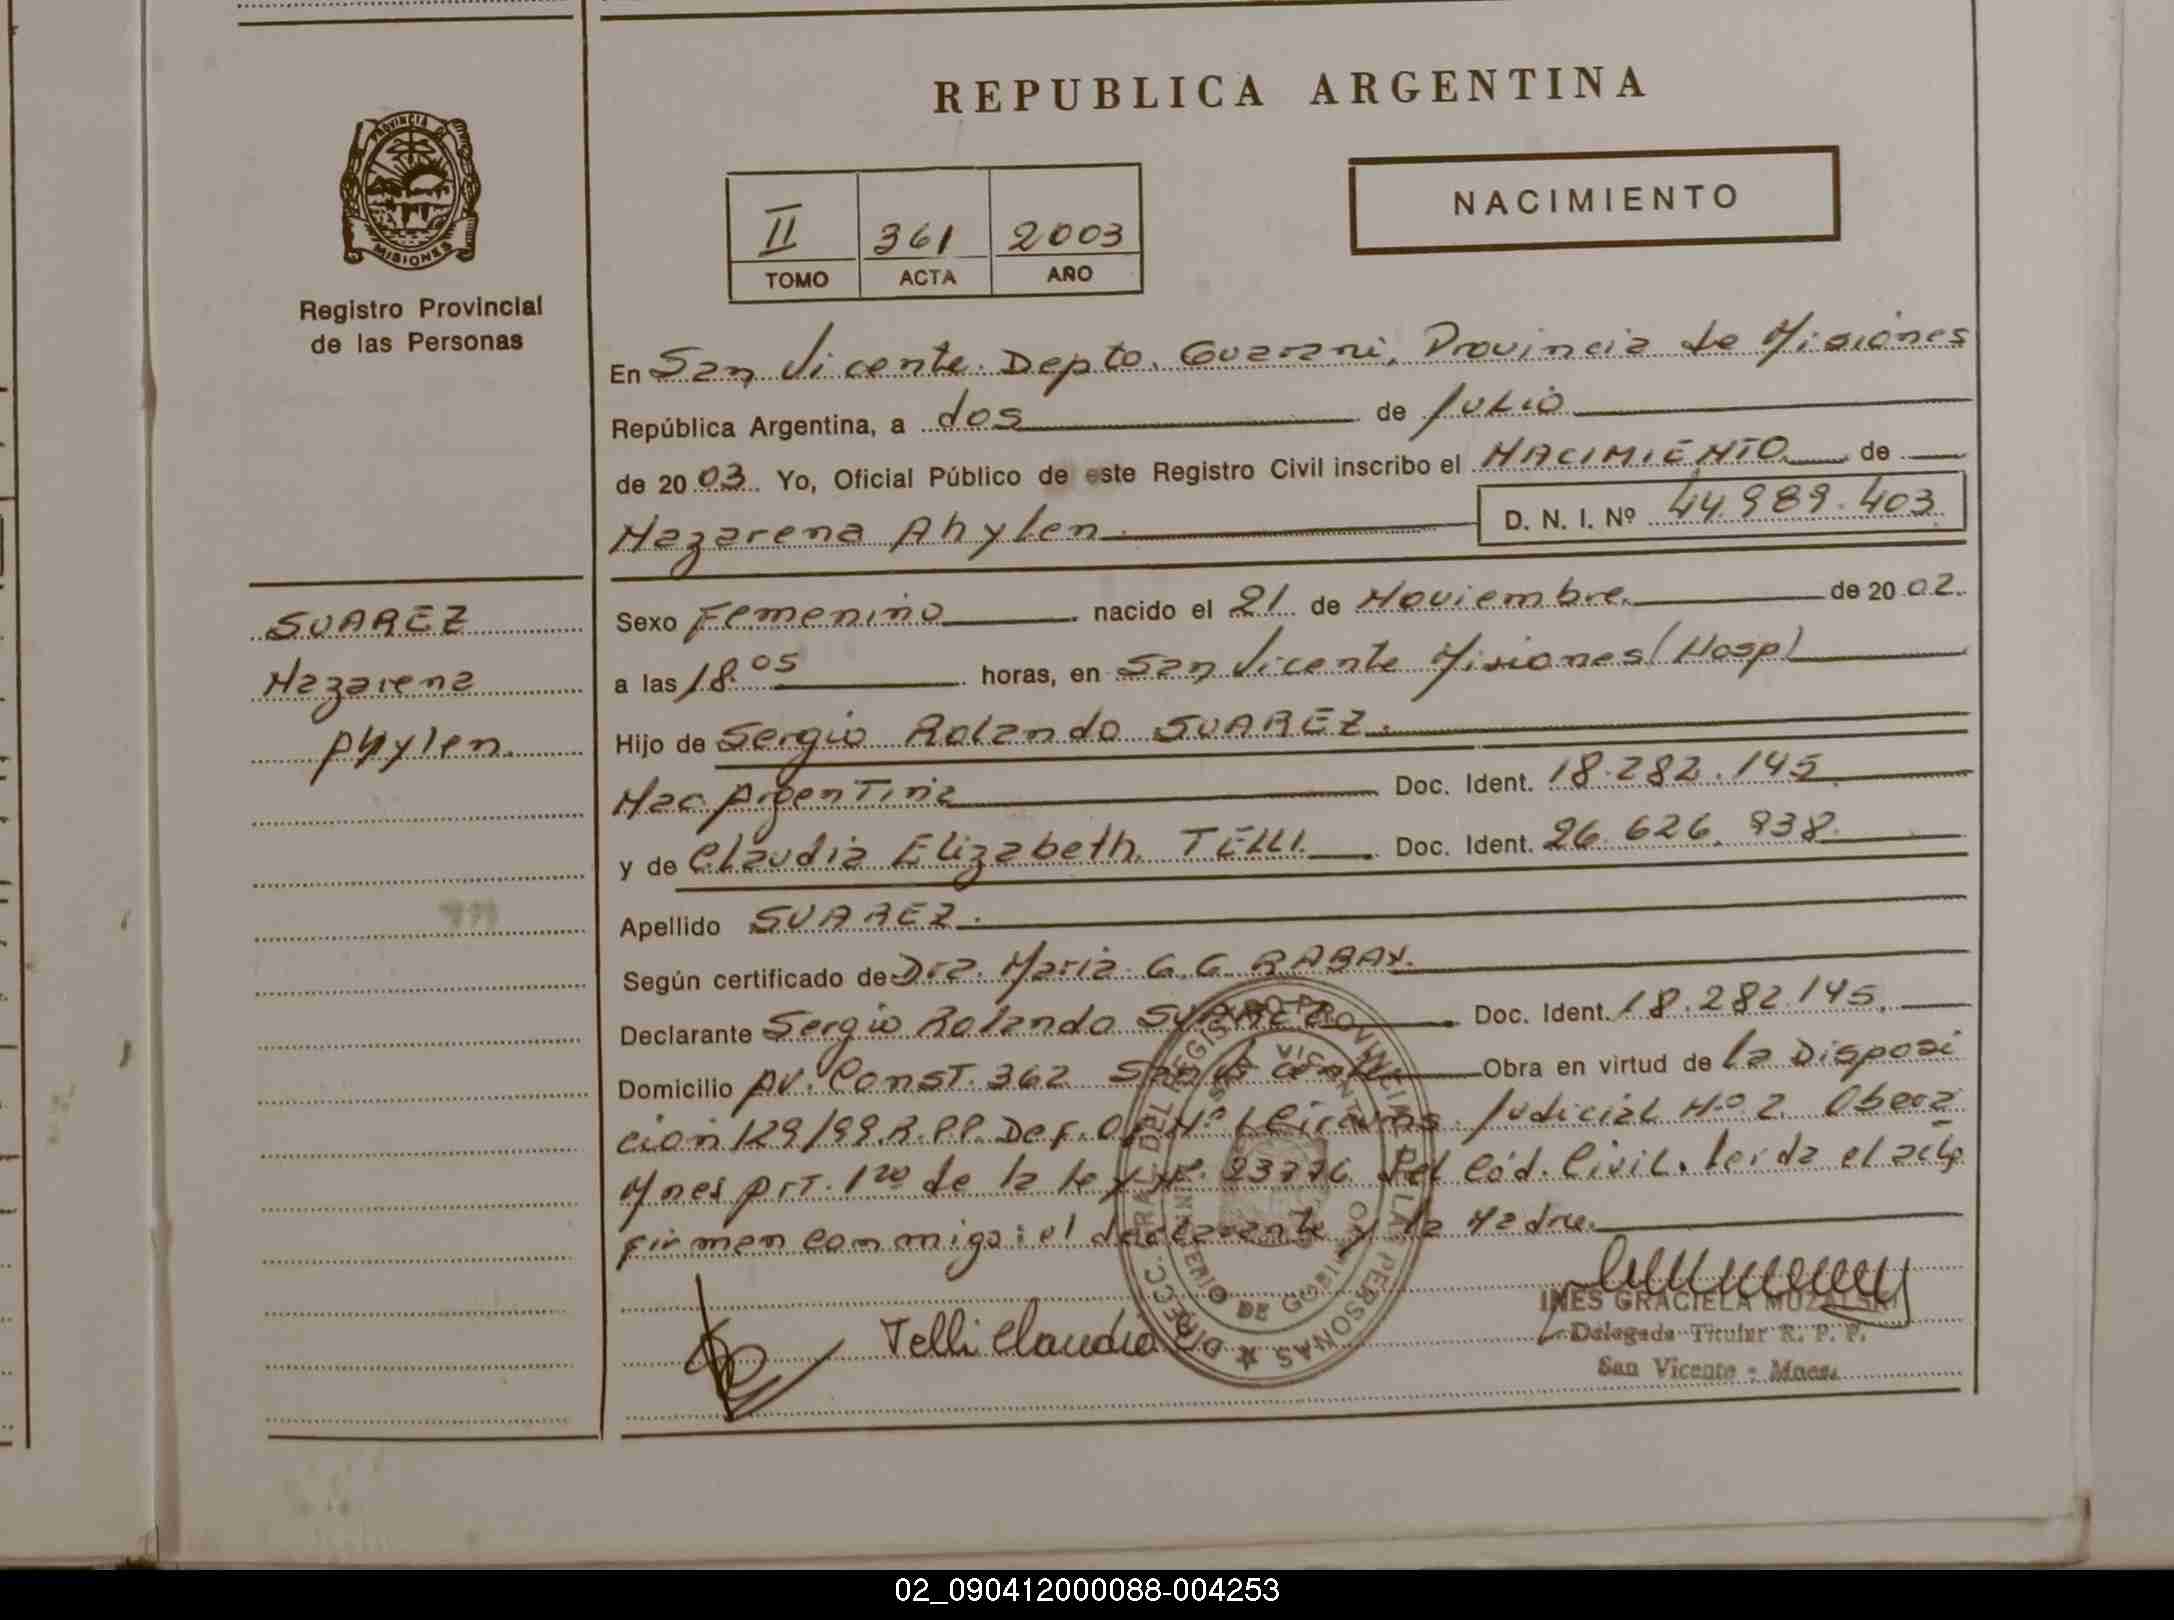 REPUBLICA ARGENTINA
PROVINCIA DE
MISIONES
Registro Provincial
de las Personas
NACIMIENTO
II 361 2003
TOMO ACTA AÑO
En San Vicente. Depto. Guarani, Provincia de Misiones
República Argentina, a dos de Julio
de 2003. Yo, Oficial Público de este Registro Civil inscribo el NACIMIENTO de
Nazarena Ahylen. D. N. I. Nº 44.989.403
SUAREZ
Nazarena
Ahylen.
Sexo Femenino nacido el 21 de Noviembre. de 2002.
a las 18.05 horas, en San Vicente Misiones (Hosp)
Hijo de Sergio Rolando SUAREZ.
Nac Argentina Doc. Ident. 18.282.145
y de Claudia Elizabeth TELLI. Doc. Ident. 26.626.938
Apellido SUAREZ.
Según certificado de Dra. Maria G. G. RABAY.
Declarante Sergio Rolando SUAREZ Doc. Ident. 18.282.145.
Domicilio AV. Const. 362 San Vicente Obra en virtud de la Disposi
cion 129/99.R.P.P. Def. Of. Nº 1 Circuns. Judicial Nº 2 Obera
Mnes Art. 1ro de la ley Nº. Del Cód. Civil. leida el acta
firmen conmigo: el declarante y la Madre.
Telli Claudia
DIRECC. GRAL. DEL REGISTRO PROVINCIAL DE LAS PERSONAS
SAN VICENTE
MINISTERIO DE GOBIERNO
INES GRACIELA MUZALSKI
Delegada Titular R. P. P.
San Vicente - Mnes.
02_090412000088-004253